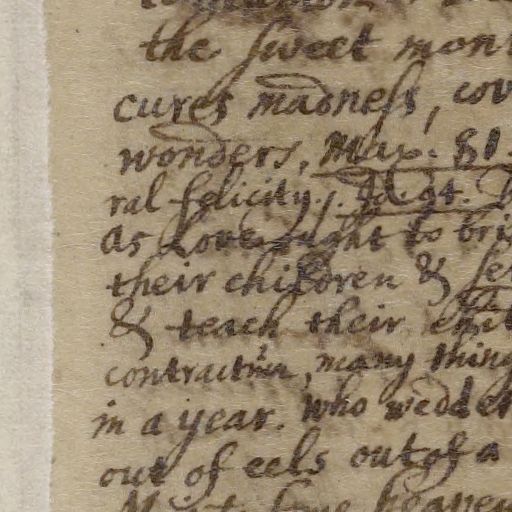 the sweet mon
cures madness, cov
wonders, Max: 51.
ral felicity. Id 94.
As Love ought to bri
their children & se
& teach their chil
many thing
in a year. Who wedder
out of eels out of a
heaven